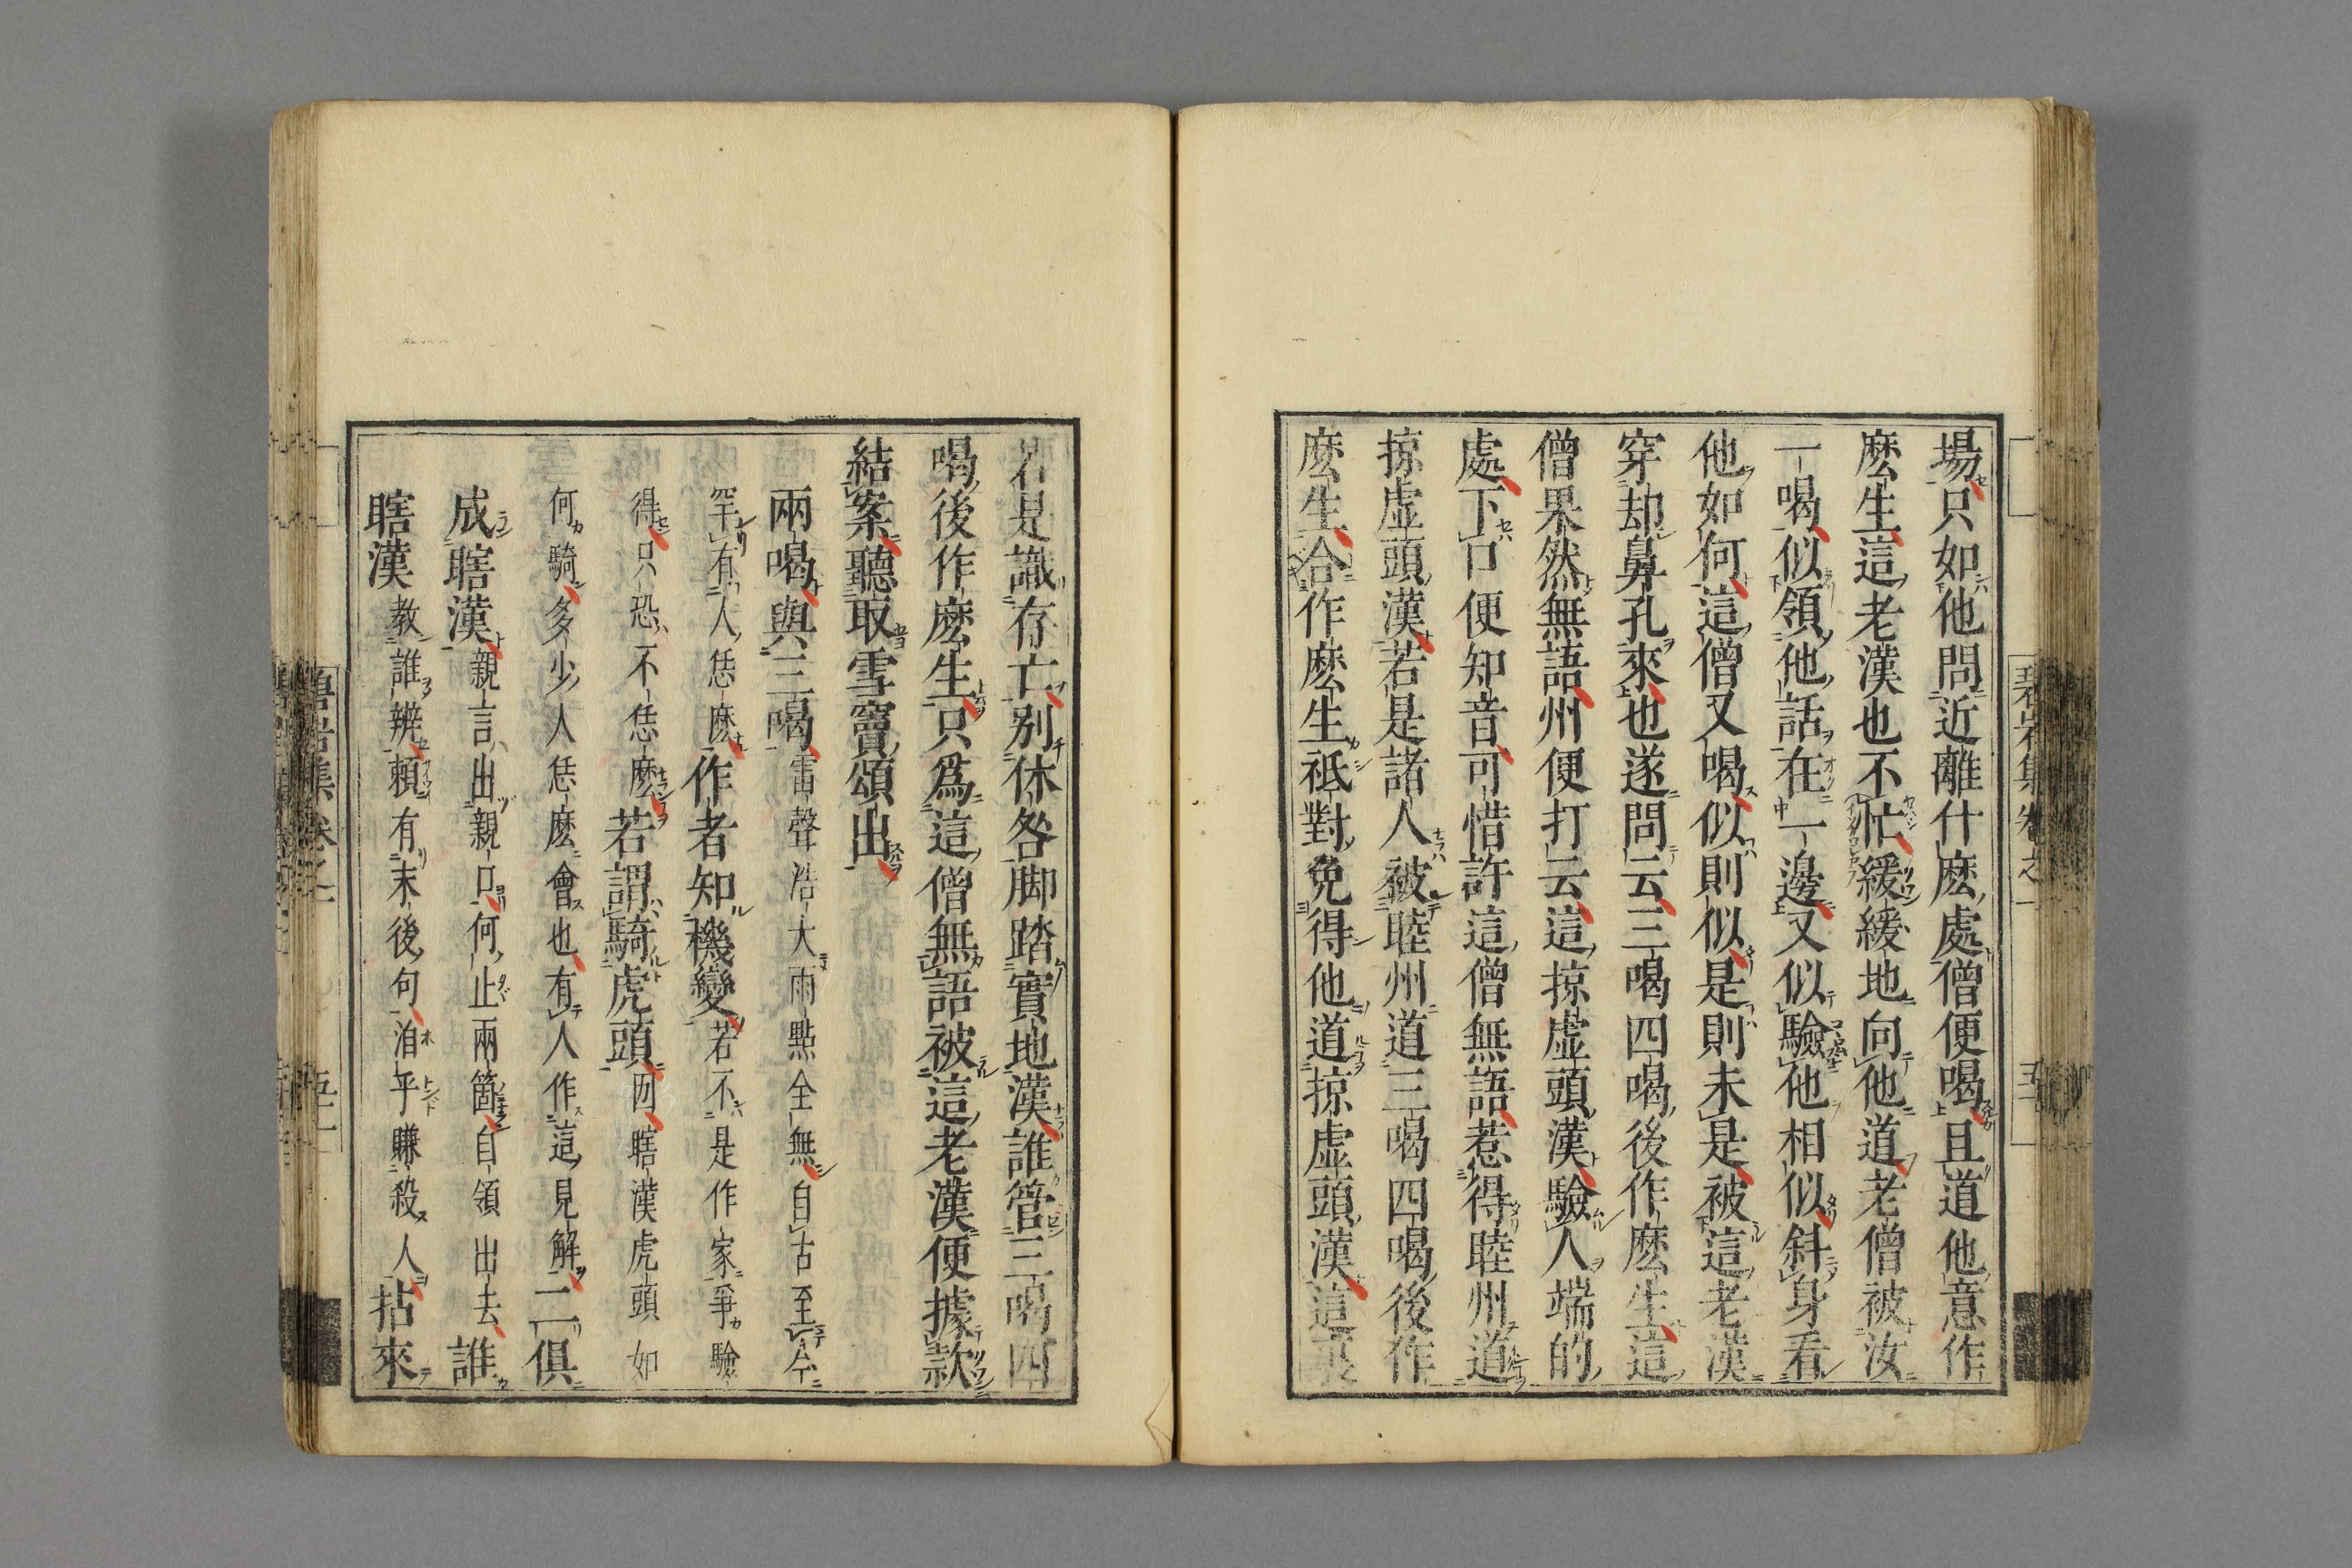 場只如他問近離什麽處僧便喝且道他意作
麽生這老漢也不忙緩緩地向他道老僧被汝
一喝似領他話在一邊又似驗他相似斜身看
他如何這僧又喝似則似是則未是被這老漢
穿却鼻孔來也遂問云三喝四喝後作麽生這
僧果然無語州便打云這掠虛頭漢驗人端的
處下口便知音可惜許這僧無語惹得睦州道
掠虛頭漢若是諸人被睦州道三喝四喝後作
麽生合作麽生祗對免得他道掠虛頭漢這裏
若是識存亡別休咎脚踏實地漢誰管三喝四
喝後作麽生只爲這僧無語被這老漢便據款
結案聽取雪竇頌出
兩喝與三喝雷聲浩大雨點全無自古至今
罕有人恁麽作者知機變若不是作家爭驗
得只恐不恁麽若謂騎虎頭㘞瞎漢虎頭如
何騎多少人恁麽會也有人作這見解二俱
成瞎漢親言出親口何止兩箇自領出去誰
瞎漢教誰辨賴有末後句洎乎賺殺人拈來
碧岩集卷之二